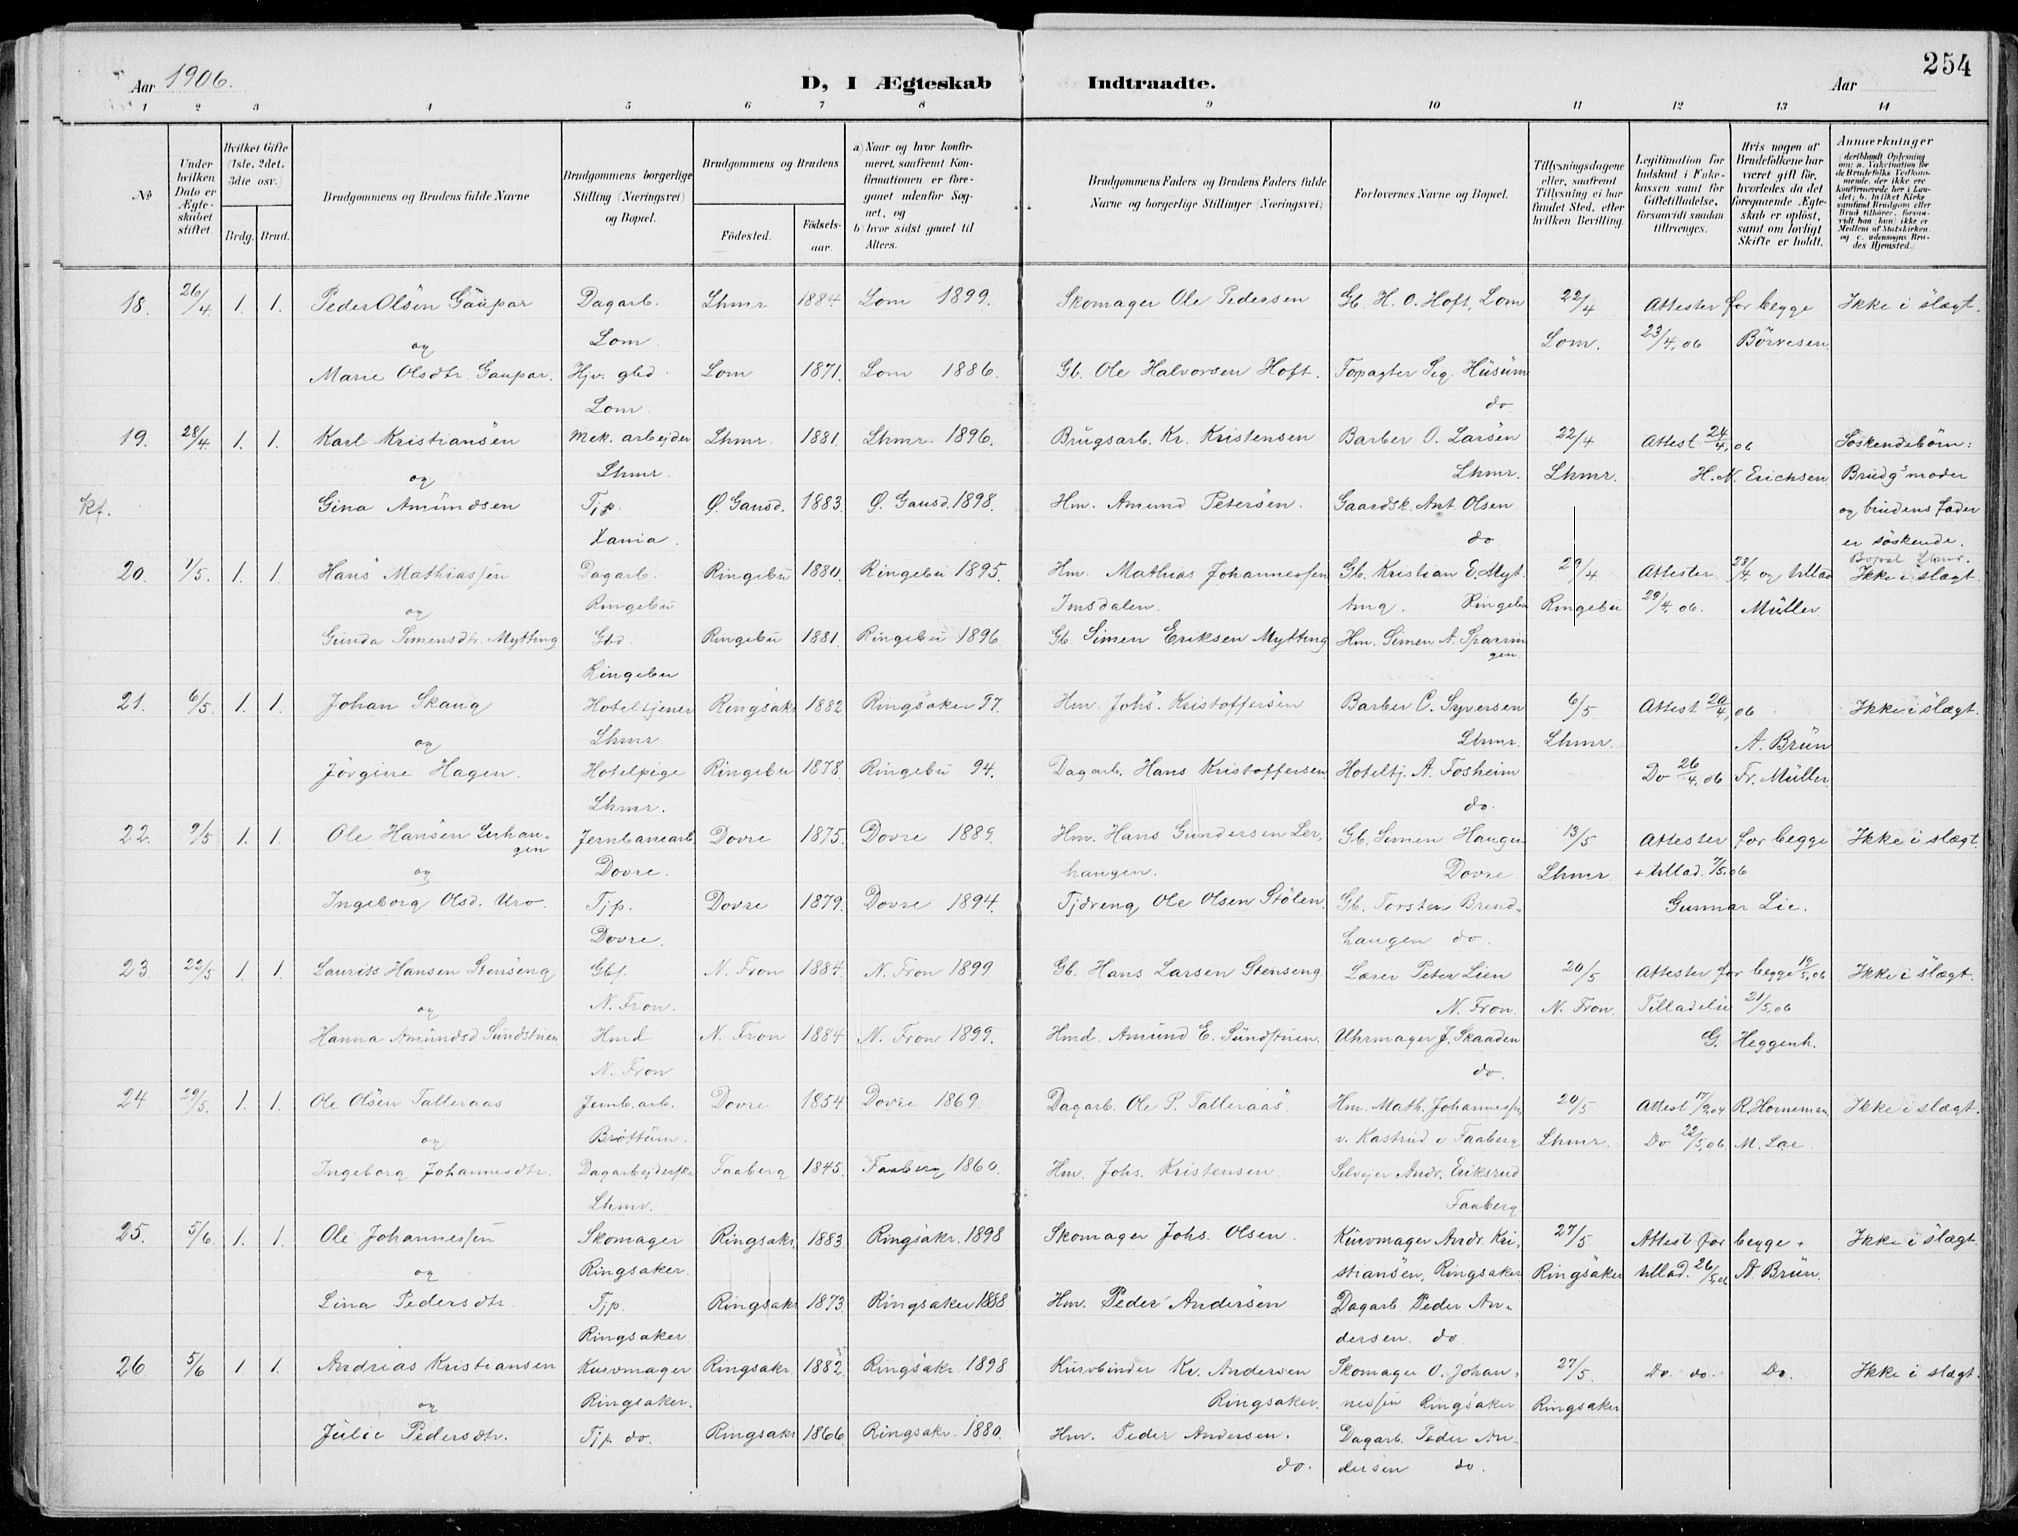 254
Aar 1906.
D, I Ægteskab Indtraadte.
Aar
1 2 3 4 5 6 7 8 9 10 11 12 13 14
No
Under hvilken Dato er Ægteskabet stiftet.
Hvilket Gifte (1ste, 2det, 3die osv.)
Brdg. Brud.
Brudgommens og Brudens fulde Navne
Brudgommens borgerlige Stilling (Næringsvei) og Bopæl.
Brudgommens og Brudens
Fødested. Fødselsaar.
a) Naar og hvor konfirmeret, saafremt Konfirmationen er foregaaet udenfor Sognet, og
b) hvor sidst gaaet til Alters.
Brudgommens Faders og Brudens Faders fulde Navne og borgerlige Stillinger (Næringsvei)
Forlovernes Navne og Bopæl.
Tillysningsdagene eller, saafremt Tillysning ei har fundet Sted, efter hvilken Bevilling.
Legitimation for Indskud i Enkekassen samt for Giftetilladelse, forsaavidt saadan tiltrænges.
Hvis nogen af Brudefolkene har været gift før, hvorledes da det foregaaende Ægteskab er opløst, samt om lovligt Skifte er holdt.
Anmerkninger
18. 26/4 1. 1. Peder Olsen Gaupar Dagarb. Lhmr 1884 Lom 1899. Skomager Ole Pedersen Gb. H. O. Hoft, Lom 22/4 Attester for begge Ikke i slægt.
og Lom. Lom. 23/4, 06 Børvesen
Marie Olsdtr. Gaupar. Hjv. gbd. Lom 1871. Lom 1886. Gb. Ole Halvorsen Hoft. Fopagter Sig. Husum
Lom. do.
19. 28/4 1. 1. Karl Kristiansen Mek. arbejder Lhmr. 1881. Lhmr. 1896. Brugsarb. Kr. Kristensen Barber O. Larsen 22/4 Attest 24/4, 06 Søskendebørn:
og Lhmr. Lhmr. Lhmr. H. N. Erichsen Brudgs moder
Kf. Gina Amundsen Tjp. Ø. Gausd. 1883. Ø. Gausd. 1898. Hm. Amund Petersen. Gaardsk. Ant. Olsen og brudens fader
Xania. do er søskende.
20. 1/5. 1. 1. Hans Mathiassen Dagarb. Ringebu 1880. Ringebu 1895. Hm. Mathias Johannessen Gb. Kristian E. Myt- 29/4 Attester 28/4 og tillad Ikke i slægt.
og Ringebu Imsdalen. ting. Ringebu Ringebu 29/4, 06. Müller
Gunda Simensdtr. Mytting. Gbd. Ringebu 1881. Ringebu 1896. Gb. Simen Eriksen Mytting Hm. Simen A.
Ringebu
21. 6/5. 1. 1. Johan Skaug Hoteltjener Ringsakr 1882. Ringsaker 97. Hm. Johs. Kristoffersen Barber C. Syversen 6/5 Attest 20/4, 06 Ikke i slægt.
og Lhmr. Lhmr. Lhmr. A. Brun
Jørgine Hagen. Hotelpige Ringebu 1878. Ringebu 94. Dagarb. Hans Kristoffersen Hoteltj. A. Fosheim Do 26/4, 06 Fr. Müller
Lhmr. do.
22. 9/5 1. 1. Ole Hansen Lerhan- Jernbanearb. Dovre 1875. Dovre 1889. Hm. Hans Gundersen Ler- Gb. Simen Haugen 13/5 Attester for begge Ikke i slægt.
gen
og Dovre. haugen. Dovre Lhmr. + tillad. 7/5, 06
Ingeborg Olsd. Uro. Tjp. Dovre 1879. Dovre 1894. Tjdreng Ole Olsen Stølen. Gb. Torsten Brend- Gunnar Lie.
Dovre. haugen do.
23. 22/5 1. 1. Laurits Hansen Stenseng Gbf. N. Fron 1884. N. Fron 1899 Gb. Hans Larsen Stenseng Lærer Peter Lien 20/5 Attester for begge 19/5, 06 Ikke i slægt.
og N. Fron. N. Fron N. Fron. Tilladelse 21/5, 06
Hanna Amundsd. Sundstuen Hmd N. Fron 1884 N. Fron 1899. Hmd. Amund E. Sundstuen. Uhrmager J. Skaaden G. Heggenh.
N. Fron do.
24 29/5. 1. 1. Ole Olsen Talleraas Jernb.arb. Dovre 1854. Dovre 1869. Dagarb. Ole P. Talleraas Hm. Math. Johannessen 20/5 Attest 17/9, 04 R. Horneman. Ikke i slægt.
og Brøttum. v. Kastrud i Faaberg Lhmr. Do 22/5, 06 M. Lae
Ingeborg Johannesdtr. Dagarbejderske Faaberg 1845. Faaberg 1860. Hm. Johs. Kristensen Selvejer Andr. Eriksrud
Lhmr. Faaberg
25. 5/6 1. 1. Ole Johannessen Skomager Ringsakr. 1883. Ringsakr. 1898 Skomager Johs. Olsen. Kurvmager Andr. Kri- 27/5 Attest for begge + Ikke i slægt.
og Ringsaker. stiansen, Ringsaker Ringsaker tillad. 26/5, 06 A. Brun.
Lina Pedersdtr. Tjp. Ringsakr 1873. Ringsaker 1888 Hm. Peder Andersen Dagarb. Peder An-
Ringsaker dersen. do.
26 5/6 1. 1. Andreas Kristiansen Kurvmager Ringsakr. 1882. Ringsakr 1898 Kurvbinder Kr. Andersen Skomager O. Johan- 27/5. Do. do. Do. Ikke i slægt.
og Ringsaker. Ringsaker. nessen Ringsaker Ringsaker
Julie Pedersdtr. Tjp. do. Ringsakr 1866. Ringsakr. 1880. Hm. Peder Andersen. Dagarb. Peder An-
do. dersen do.